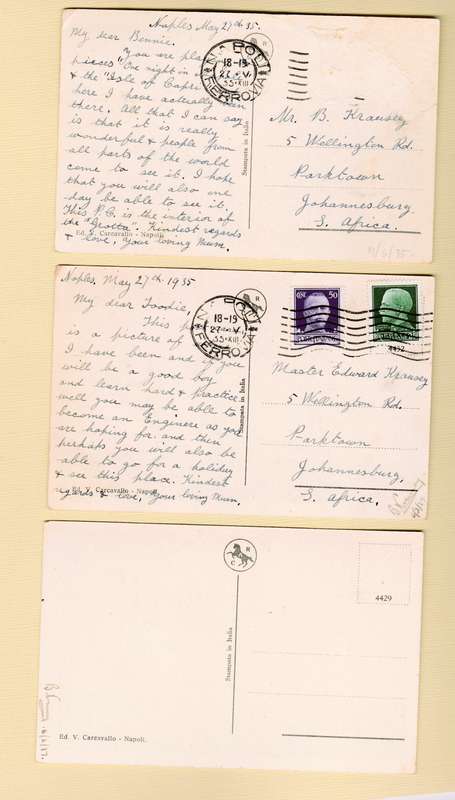 Naples May 27th 35.
My dear Bennie.
You are
pieces "One night in
& the "Isle of Capri
here I have actually been
there. All that I can say
is that it is really
wonderful & people from
all parts of the world
come to see it. I hope
that you will also one
day be able to see it.
This P.C. is the interior of
the "Grotta". Kindest regards
& love, your loving Mum.
Ed. V. Carcavallo - Napoli.
Stampata in Italia
R
NAPOLI
18-19
27 V
35·XIII
FERROVIA
Mr. B. Krausey
5 Wellington Rd.
Parktown
Johannesburg.
S. Africa.
Naples. May 27th. 1935
My dear Toodie,
This
is a picture of
I have been and if you
will be a good boy
and learn hard & practice
well you may be able to
become an Engineer as you
are hoping for. and then
perhaps you will also be
able to go for a holiday
& see this place. Kindest
regards & love, your loving Mum.
Ed. V. Carcavallo - Napoli.
Stampata in Italia
R
NAPOLI
18-19
27 V
35·XIII
FERROVIA
50
4432
Master Edward Krausey
5 Wellington Rd.
Parktown
Johannesburg,
S. Africa.
C R
4429
Stampata in Italia
Ed. V. Carcavallo - Napoli.